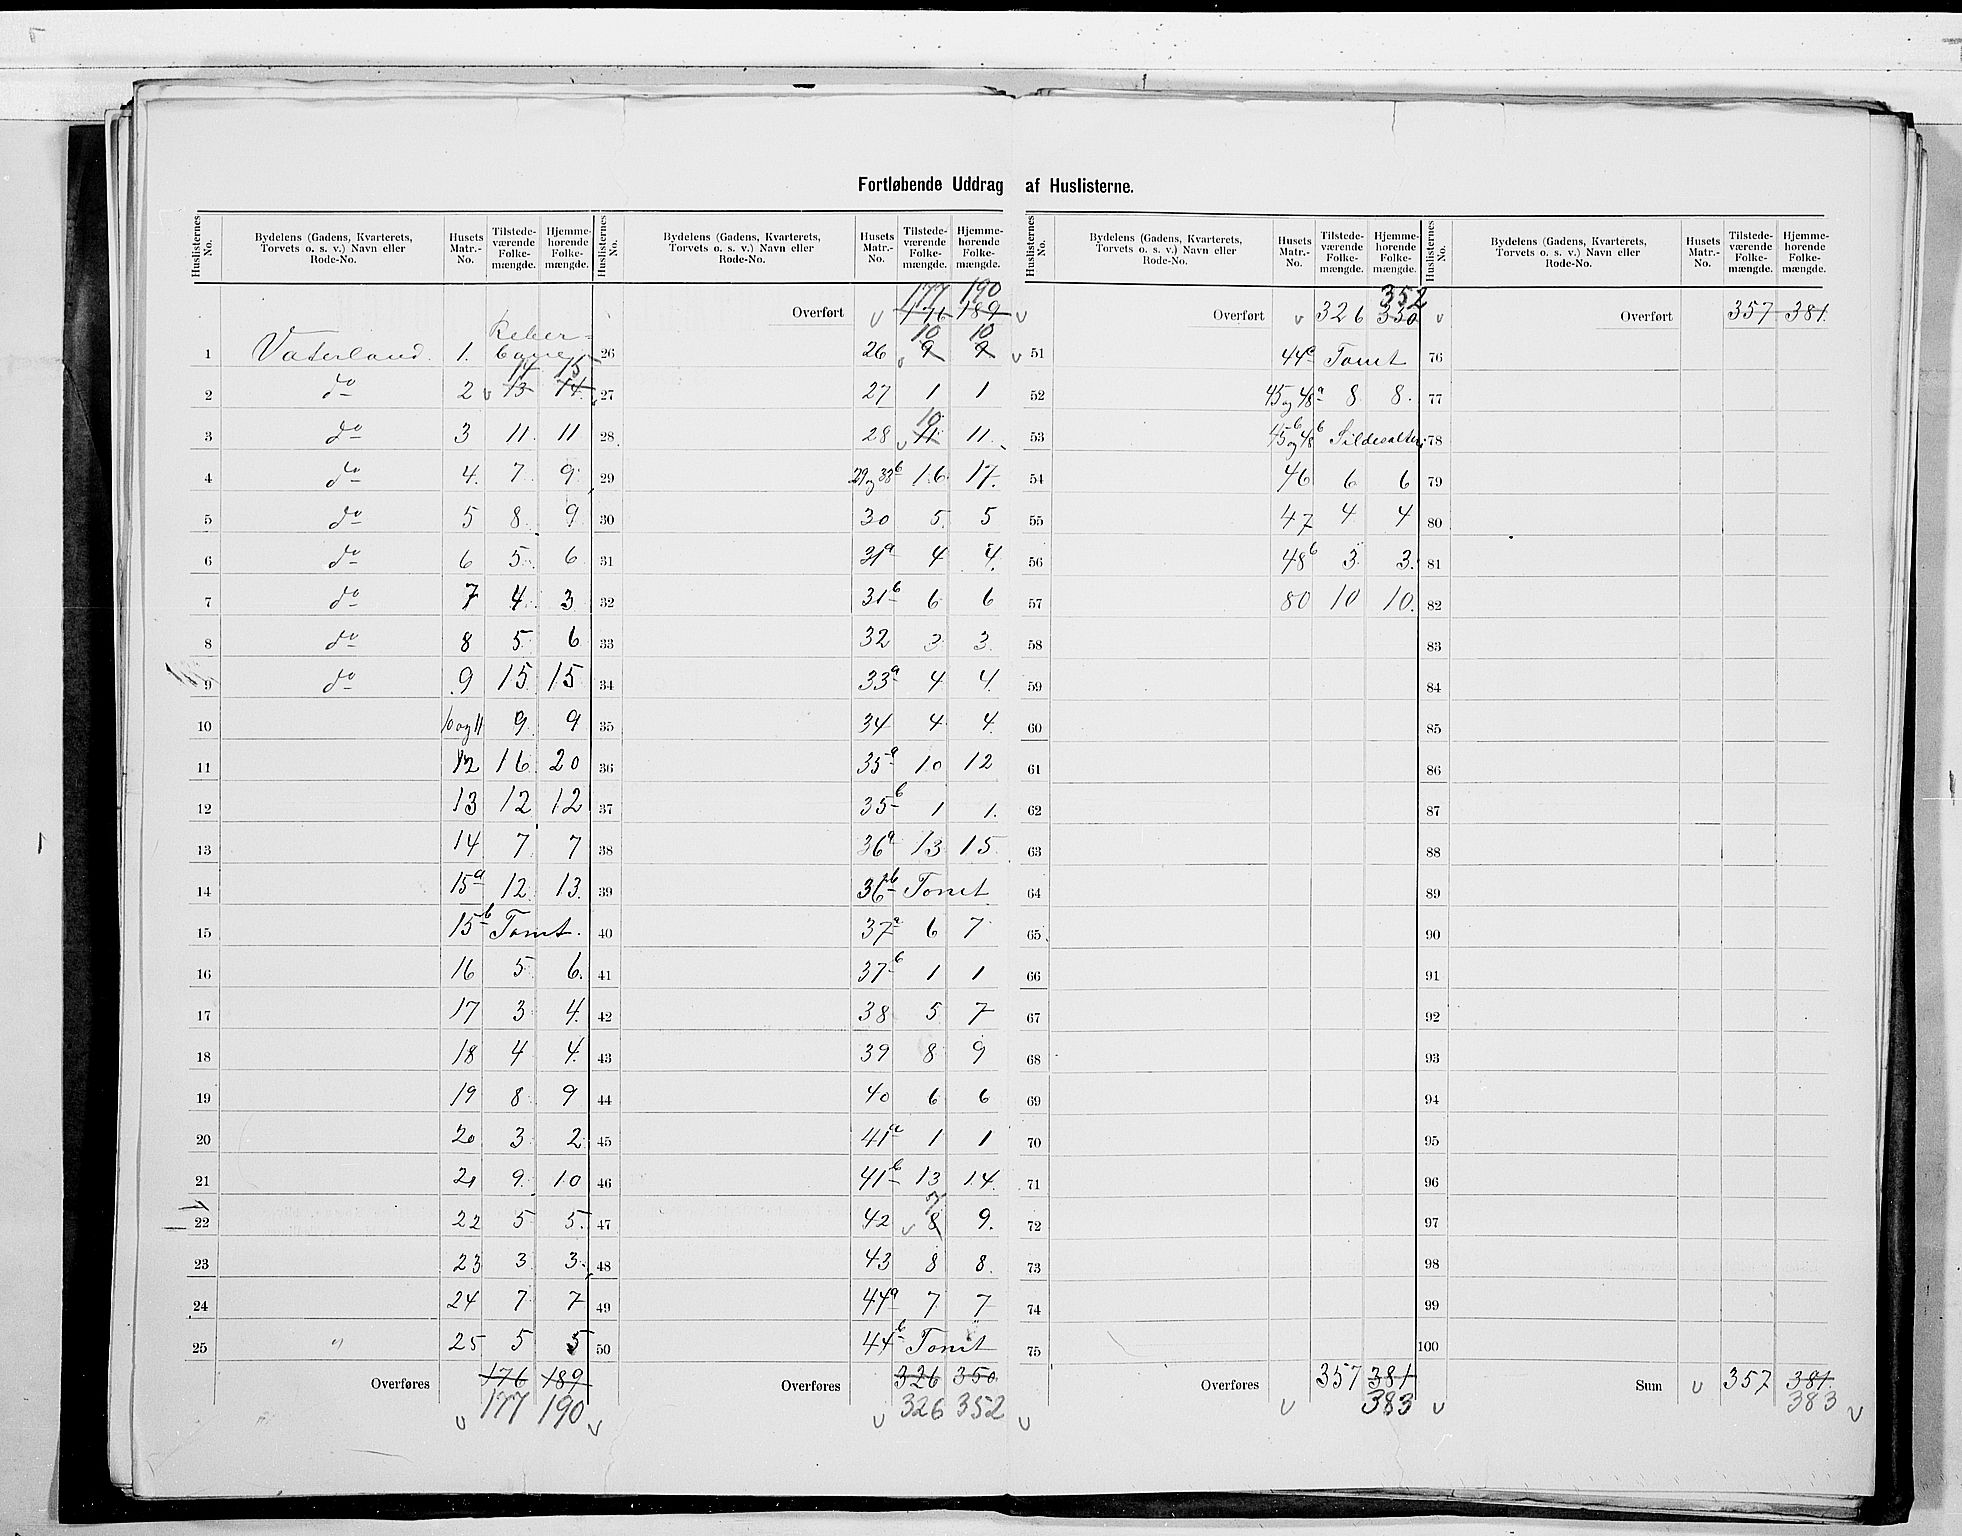 Fortløbende Uddrag af Huslisterne.
Huslisternes No. | Bydelens (Gadens, Kvarterets, Torvets o. s. v.) Navn eller Rode-No. | Husets Matr.-No. | Tilstede-værende Folke-mængde. | Hjemme-hørende Folke-mængde.
1 Vaterland. 1. Reber-bane
2 do 2 v 13 14 14 15
3 do 3 11 11
4 do 4. 7 9
5 do 5 8 9
6 do 6 5 6
7 do 7 4 3
8 do 8 5 6
9 do 9 15 15
10 10 og 11 9 9
11 12 16 20
12 13 12 12
13 14 7 7
14 15a 12 13
15 15b Tomt.
16 16 5 6.
17 17 3 4.
18 18 4 4.
19 19 8 9
20 20 3 2
21 21 9 10
22 22 5 5.
23 23 3 3.
24 24 7 7
25 " 25 5 5
Overføres 176 189
v 177 190 v
Huslisternes No. | Bydelens (Gadens, Kvarterets, Torvets o. s. v.) Navn eller Rode-No. | Husets Matr.-No. | Tilstede-værende Folke-mængde. | Hjemme-hørende Folke-mængde.
177 190
Overført v 176 189 v
10 10
26 26 v 9 9 v
27 27 1 1
10
28 28 v 11 11.
29 29 og 33b 16 17.
30 30 5 5
31 31a 4 4.
32 31b 6 6
33 32 3 3.
34 33a 4 4.
35 34 4 4.
36 35a 10 12
37 35b 1 1.
38 36a 13 15.
39 36b Tomt
40 37a 6 7
41 37b 1 1
42 38 5 7
43 39 8 9
44 40 6 6
45 41a 1 1
46 41b 13 14.
7
47 42 v 8 9.
48 43 8 8.
49 44a 7 7
50 44b Tomt
Overføres 326 350
v 326 352 v
Huslisternes No. | Bydelens (Gadens, Kvarterets, Torvets o. s. v.) Navn eller Rode-No. | Husets Matr.-No. | Tilstede-værende Folke-mængde. | Hjemme-hørende Folke-mængde.
352
Overført v 326 350 v
51 44c Tomt
52 45 og 48a 8 8.
53 45b og 48b Sildesalteri
54 46 6 6
55 47 4 4
56 48b 3 3.
57 80 10 10.
58
59
60
61
62
63
64
65
66
67
68
69
70
71
72
73
74
75
Overføres 357 381
v 383 v
Huslisternes No. | Bydelens (Gadens, Kvarterets, Torvets o. s. v.) Navn eller Rode-No. | Husets Matr.-No. | Tilstede-værende Folke-mængde. | Hjemme-hørende Folke-mængde.
Overført 357 381.
76
77
78
79
80
81
82
83
84
85
86
87
88
89
90
91
92
93
94
95
96
97
98
99
100
Sum v 357 381.
383 v